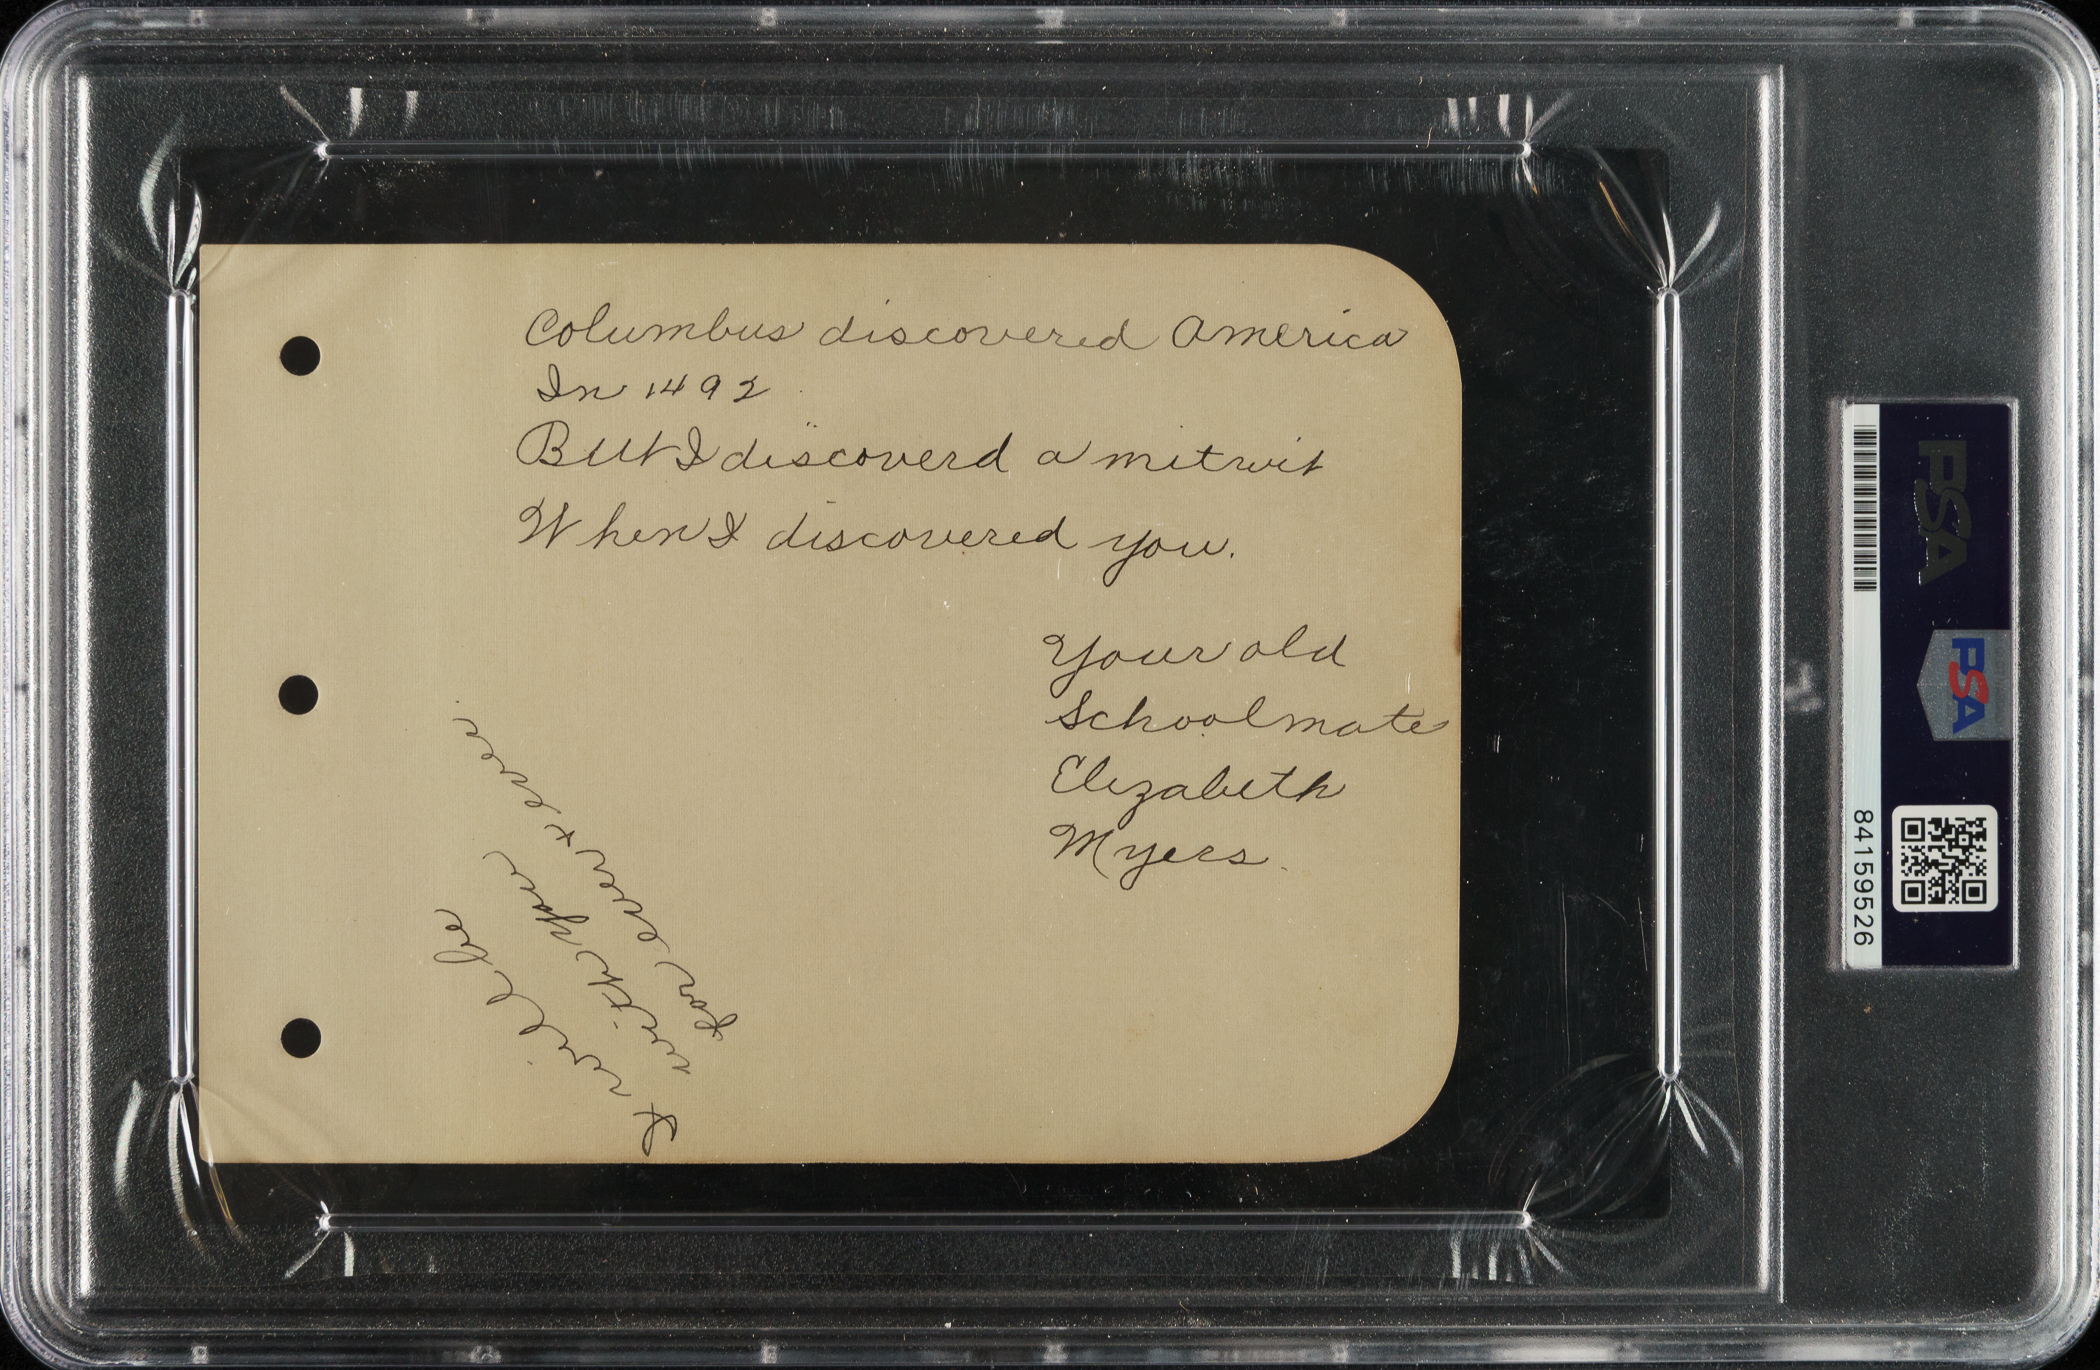 Columbus discovered America
In 1492
But I discoverd a mitwit
When I discovered you.
Your old
Schoolmate
Elizabeth
Myers.
I will be
with you
for ever + ever
PSA
PSA
84159526